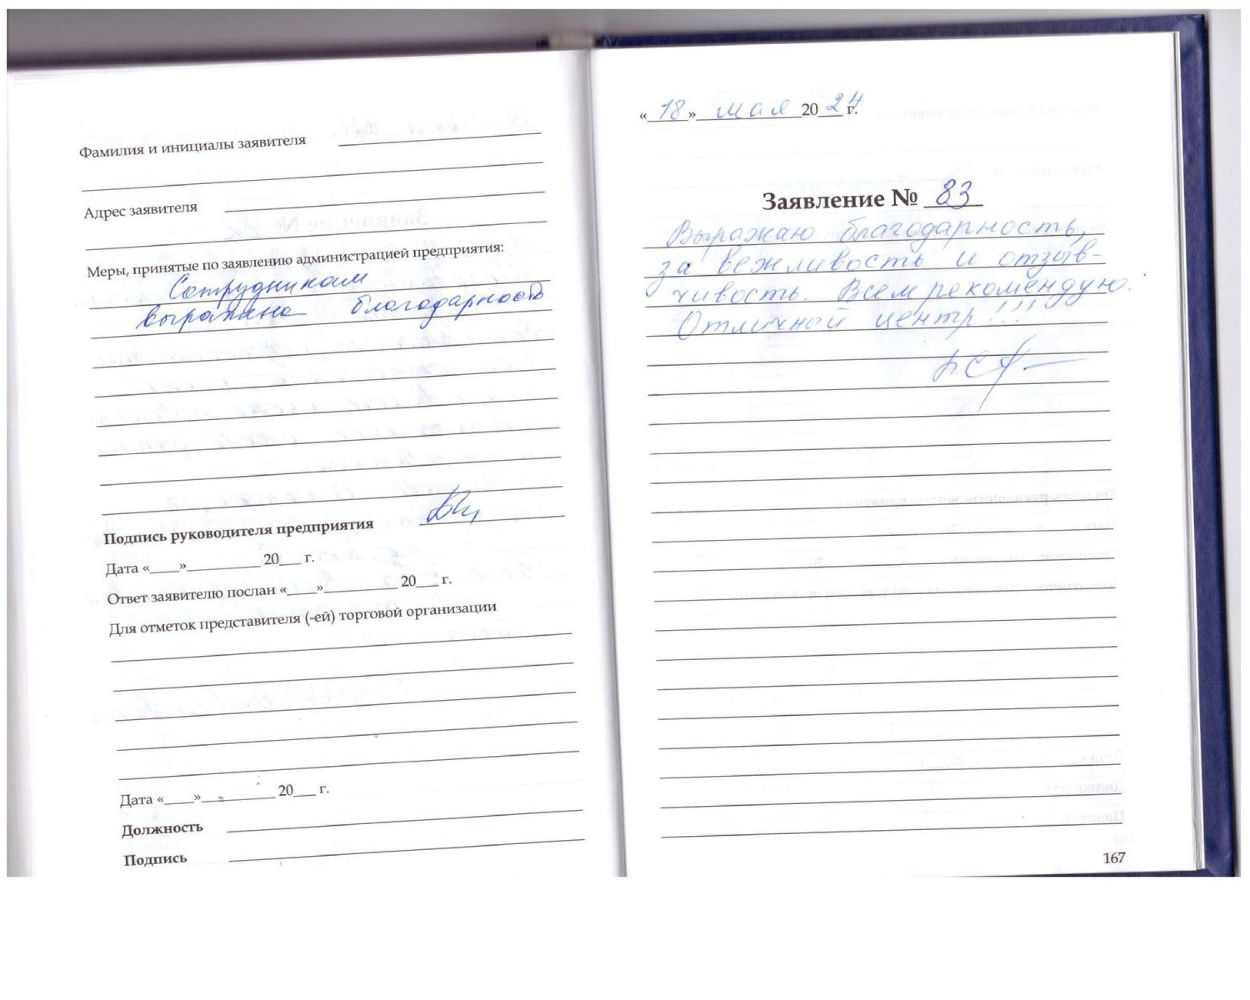 Фамилия и инициалы заявителя
Адрес заявителя
Меры, принятые по заявлению администрацией предприятия:
Сотрудникам
выражена благодарность
Подпись руководителя предприятия
Дата «____»__________ 20___ г.
Ответ заявителю послан «____»__________ 20___ г.
Для отметок представителя (-ей) торговой организации
Дата «____»__________ 20___ г.
Должность
Подпись
«18» мая 2024 г.
Заявление № 83
Выражаю благодарность,
за вежливость и отзыв-
чивость. Всем рекомендую.
Отличной центр!!!
167